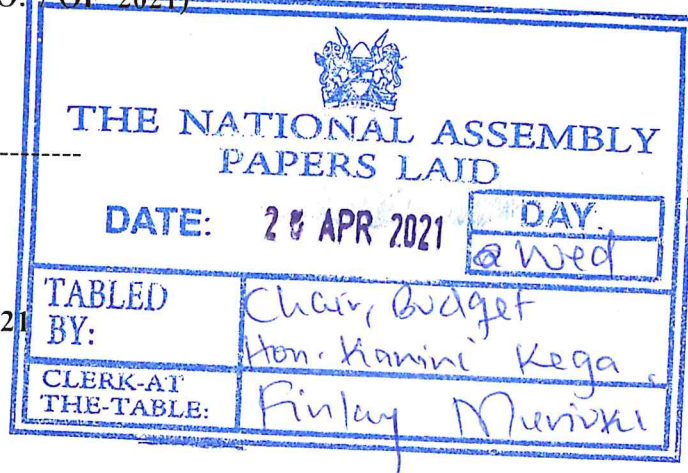 OF 2021)
THE NATIONAL ASSEMBLY
PAPERS LAID
DATE: 28 APR 2021 DAY:
@ Wed
21
TABLED BY: Chair, Budget
Hon. Kanini Kega
CLERK-AT
THE-TABLE: Finlay Muriuki